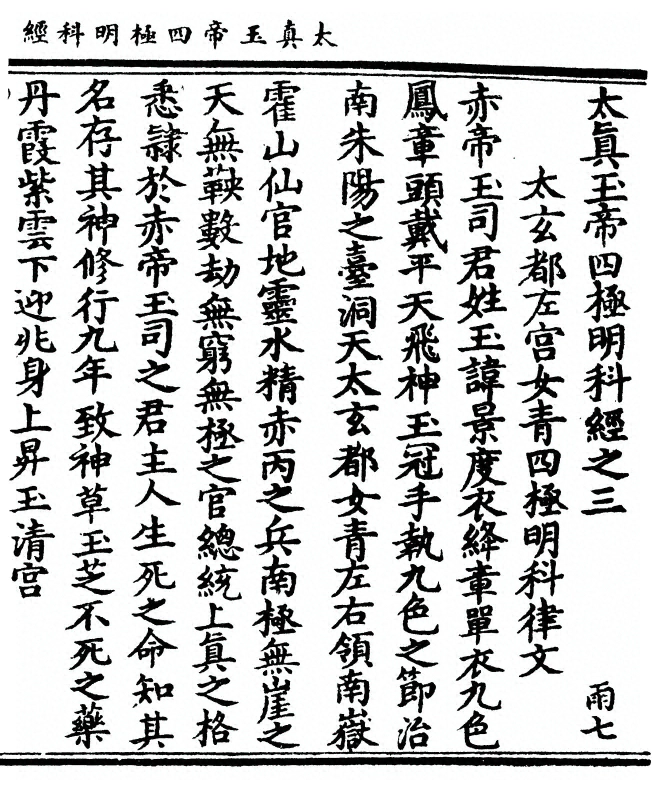 太真玉帝四極明科經
太眞玉帝四極明科經之三
雨七
太玄都左宫女青四極明科律文
赤帝玉司君姓玉諱景度衣絳章單衣九色
鳳章頭戴平天飛神玉冠手執九色之節治
南朱陽之臺洞天太玄都女青左右領南嶽
霍山仙官地靈水精赤丙之兵南極無崖之
天無鞅數劫無窮無極之官總統上眞之格
悉隷於赤帝玉司之君主人生死之命知其
名存其神修行九年致神草玉芝不死之藥
丹霞紫雲下迎兆身上昇玉清宫